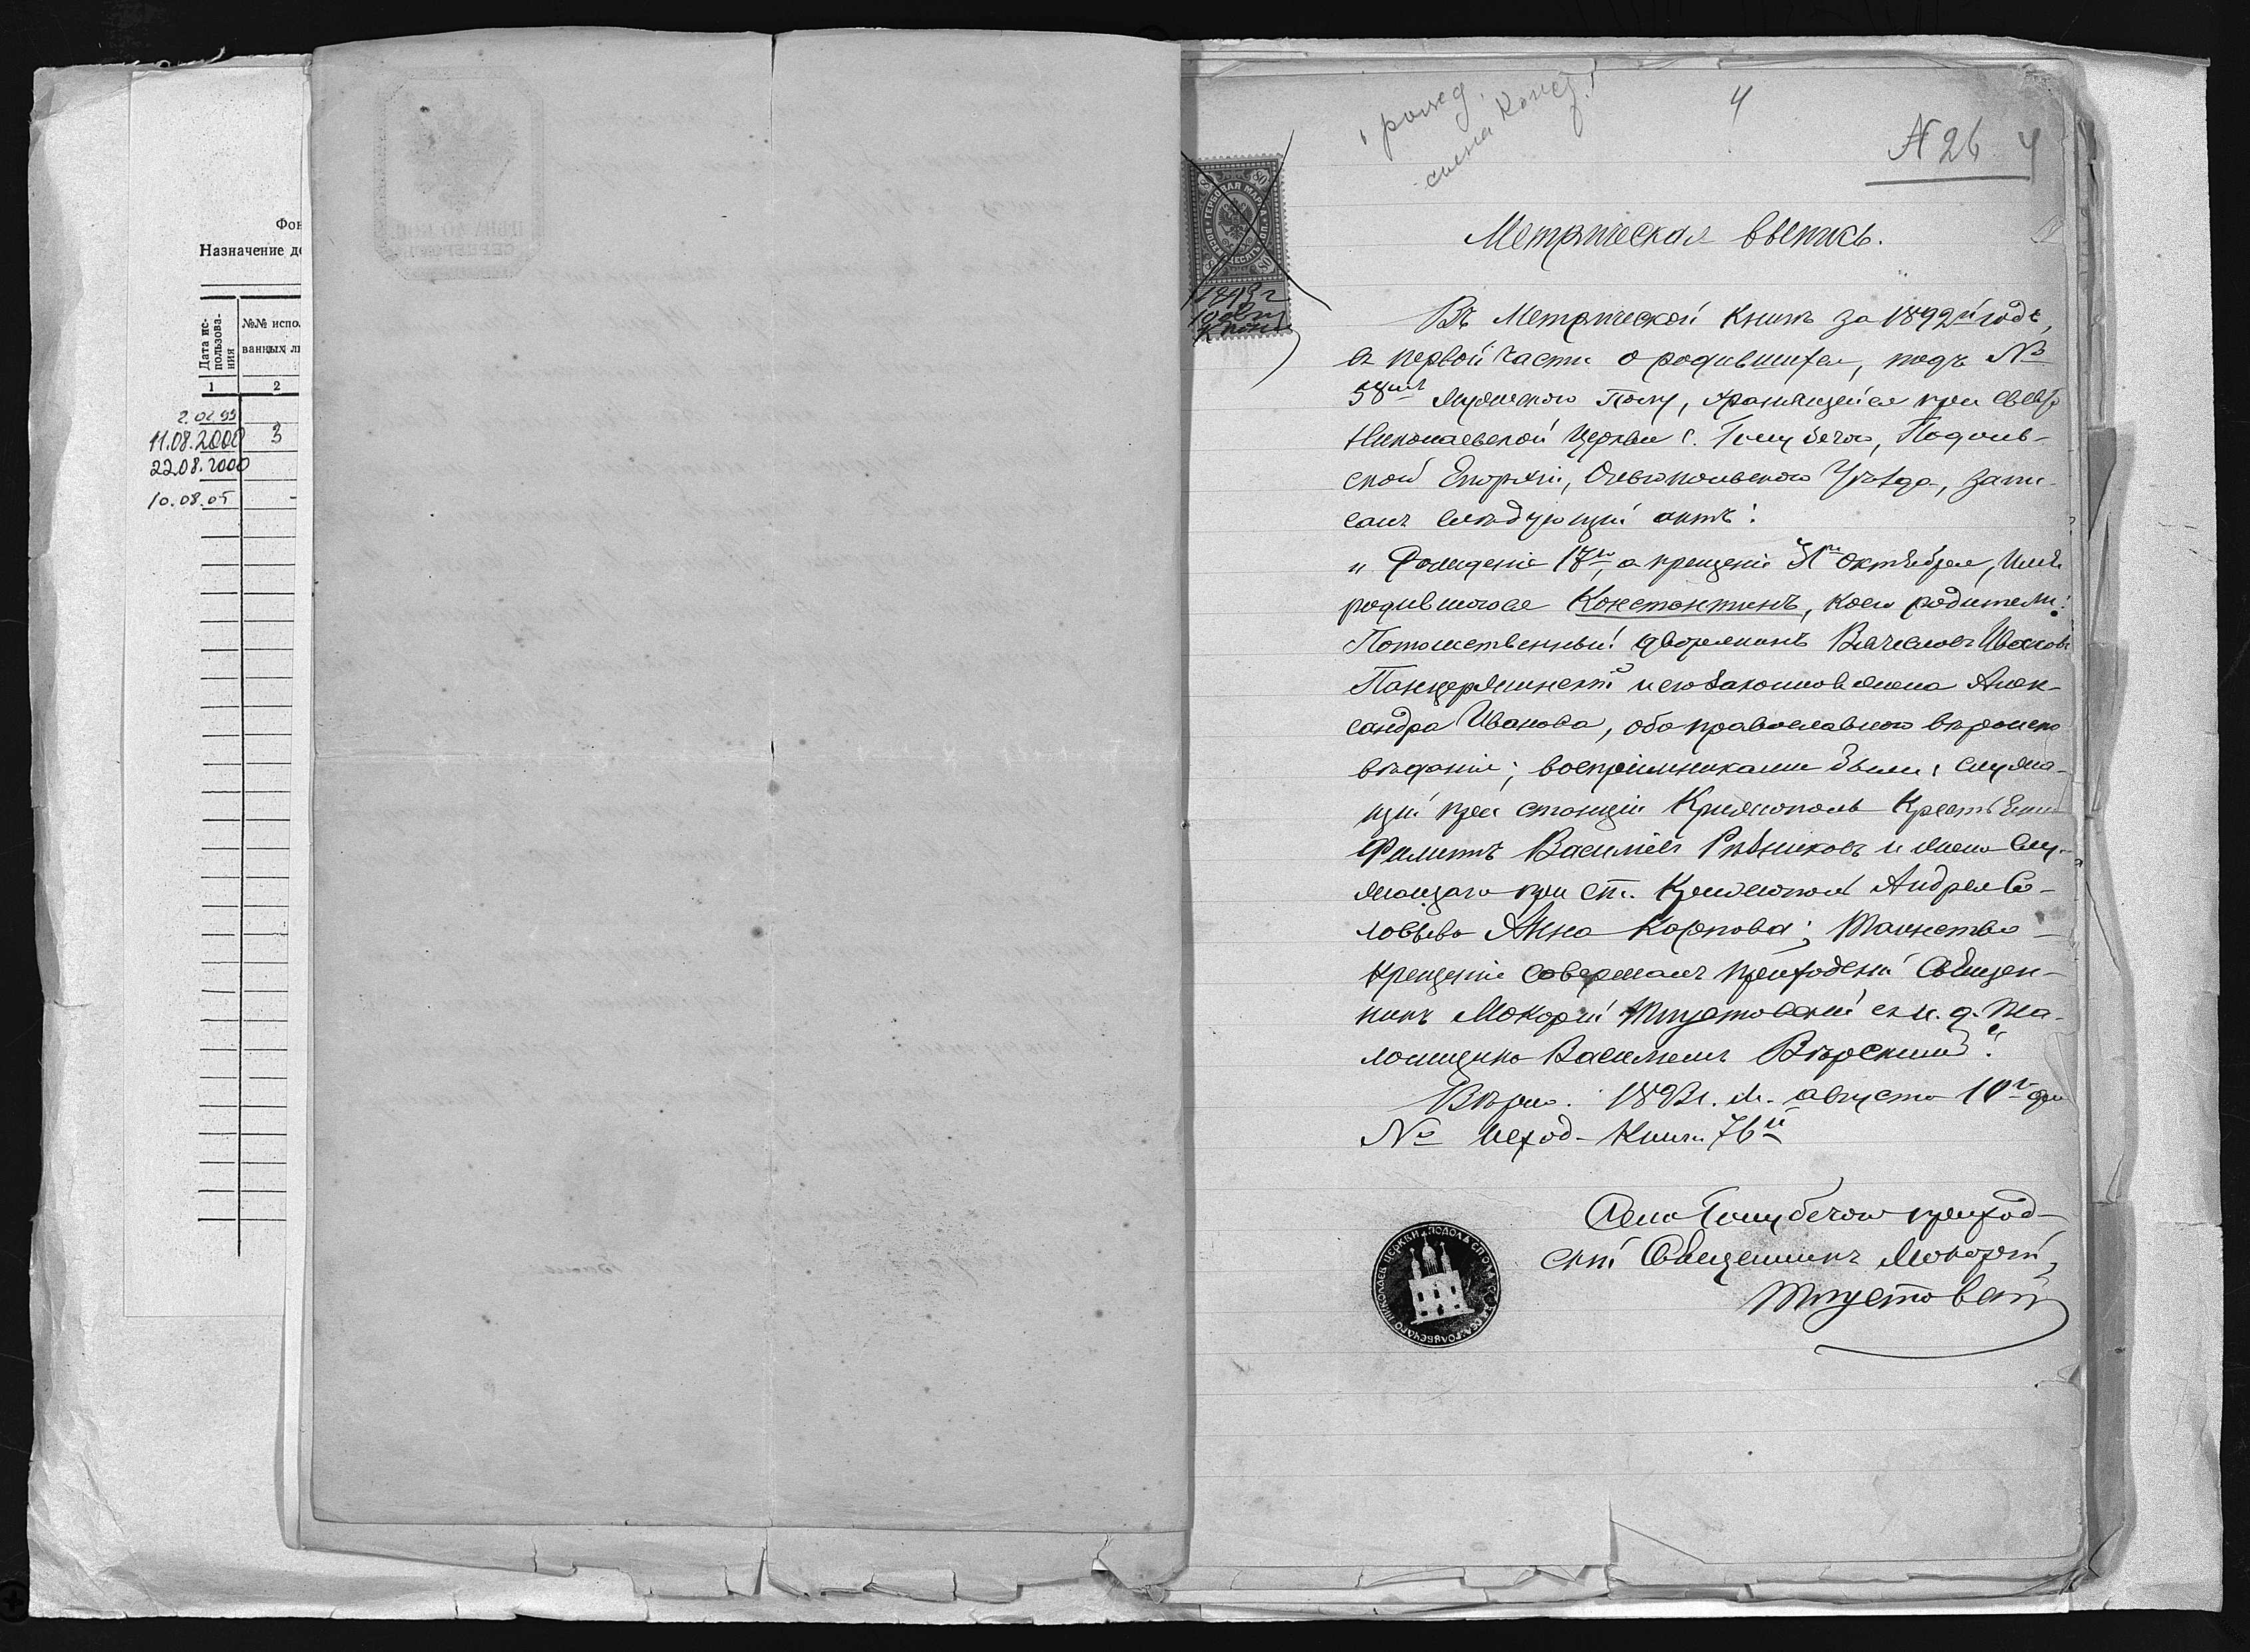 Фон
Назначение до
Дата ис-
пользова-
ния
№№ испо
ванных ли
1
2
2.02.99
11.08.2000 3
22.08.2000
10.08.05
рожд.
сына Конст.
4
№ 26 4
ГЕРБОВАЯ МАРКА
80
10 авг
Метрическая выпись.
Въ Метрической Книгѣ за 1892й годъ,
въ первой части о родившихся, подъ №
58мъ мужескаго полу, хранящейся при Свято-
Николаевской Церкви с. Голубечаго, Подоль-
ской Епархіи, Ольгопольскаго Уѣзда, запи-
санъ слѣдующій актъ:
„Рожденіе 17го, а крещеніе 31го Октября, имя
родившагося Константинъ, коего родители:
Потомственный дворянинъ Вячеславъ Ивановъ
Панцержинскій и его законная жена Алек-
сандра Иванова, оба православнаго вѣроиспо-
вѣданія; воспріемниками были: служа-
щій при станціи Крыжополь Крестьянинъ
Филиппъ Васильевъ Рѣзниковъ и жена слу-
жащаго при ст. Крыжополь Андрея Со-
ловьева Анна Карпова; Таинство
крещенія совершалъ приходскій Священ-
никъ Макарій Тпустовскій съ и. д. пса-
ломщика Василіемъ Вѣрскимъ“.
Вѣрно. 1893 г. м. августа 10го дня
№ исход. Книги 76й
Села Голубечаго приход-
скій Священникъ Макарій